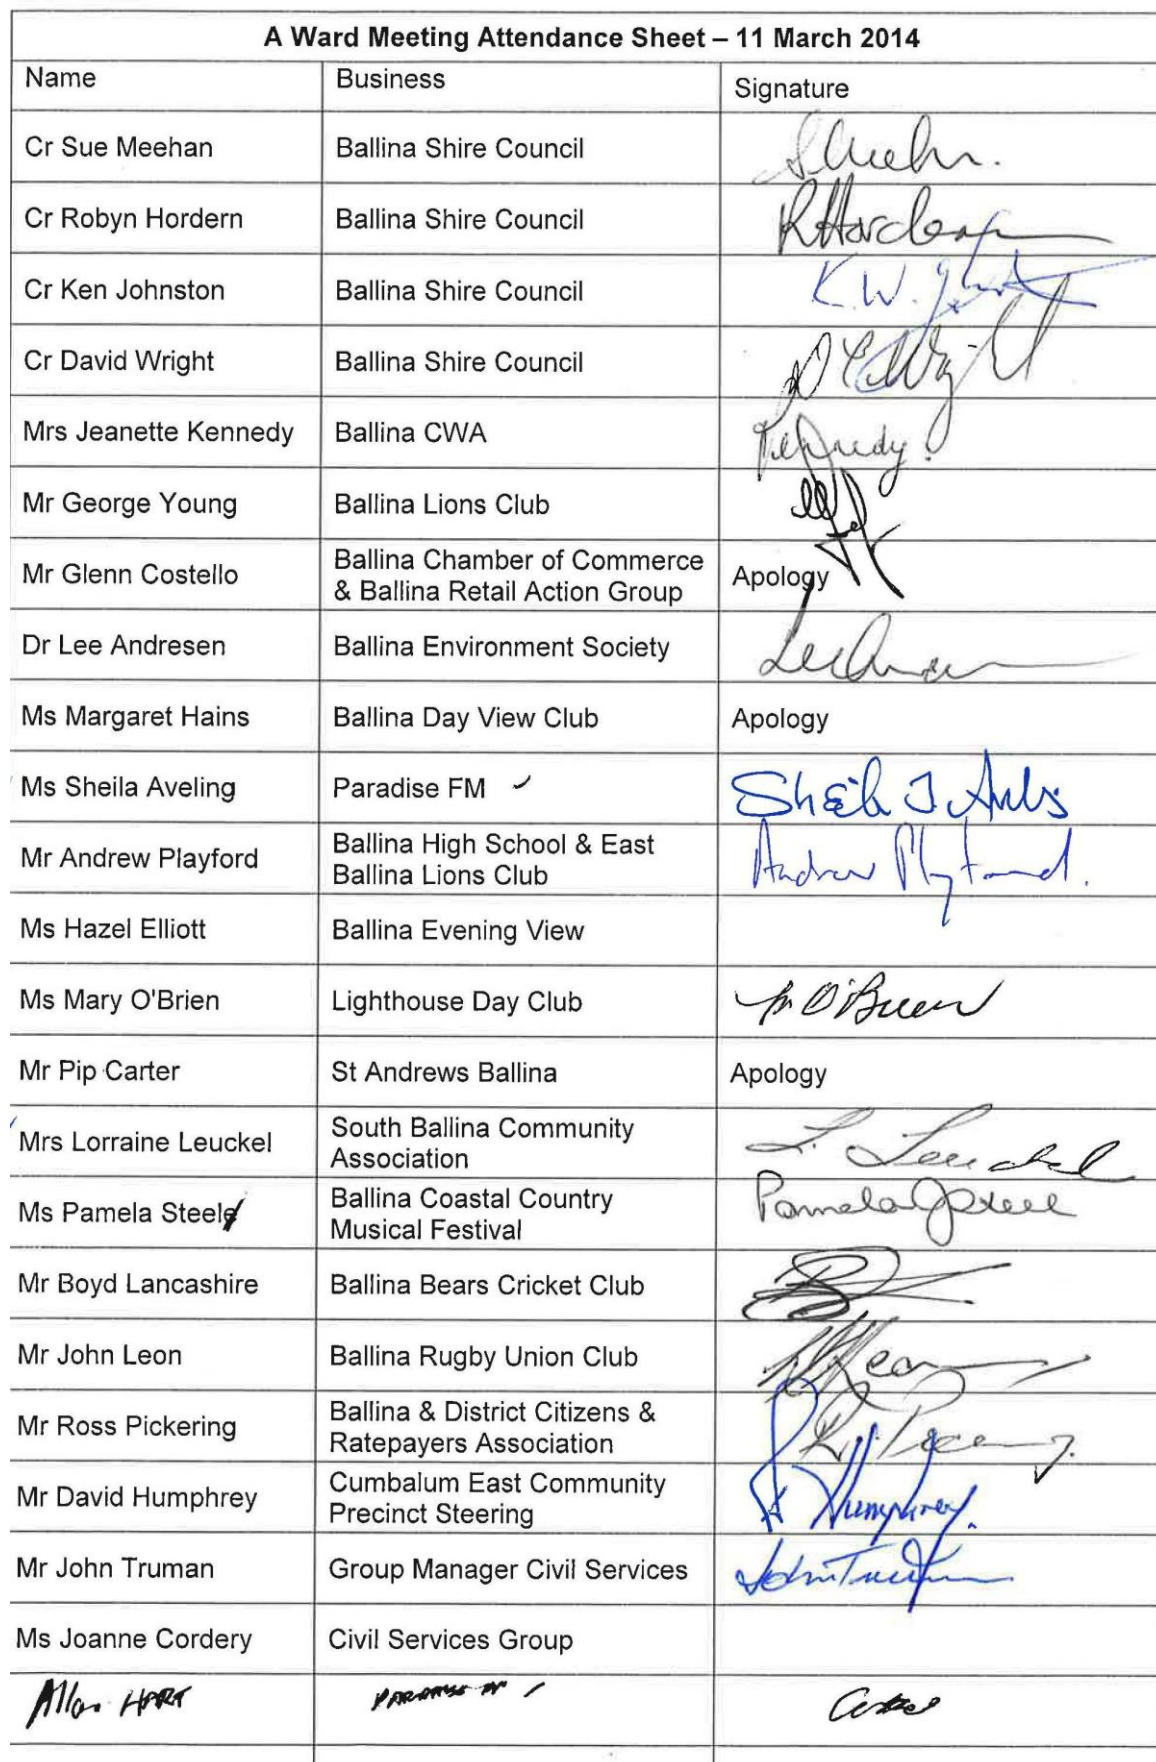 A Ward Meeting Attendance Sheet – 11 March 2014
Name Business Signature
Cr Sue Meehan Ballina Shire Council
Cr Robyn Hordern Ballina Shire Council
Cr Ken Johnston Ballina Shire Council K.W.
Cr David Wright Ballina Shire Council
Mrs Jeanette Kennedy Ballina CWA
Mr George Young Ballina Lions Club
Mr Glenn Costello Ballina Chamber of Commerce
& Ballina Retail Action Group Apology
Dr Lee Andresen Ballina Environment Society
Ms Margaret Hains Ballina Day View Club Apology
Ms Sheila Aveling Paradise FM
Mr Andrew Playford Ballina High School & East
Ballina Lions Club Andrew Playford.
Ms Hazel Elliott Ballina Evening View
Ms Mary O'Brien Lighthouse Day Club M O'Brien
Mr Pip Carter St Andrews Ballina Apology
Mrs Lorraine Leuckel South Ballina Community
Association L. Leuckel
Ms Pamela Steele Ballina Coastal Country
Musical Festival Pamela J Steele
Mr Boyd Lancashire Ballina Bears Cricket Club
Mr John Leon Ballina Rugby Union Club
Mr Ross Pickering Ballina & District Citizens &
Ratepayers Association
Mr David Humphrey Cumbalum East Community
Precinct Steering Humphrey.
Mr John Truman Group Manager Civil Services John Truman
Ms Joanne Cordery Civil Services Group
Allan HART PARADISE FM